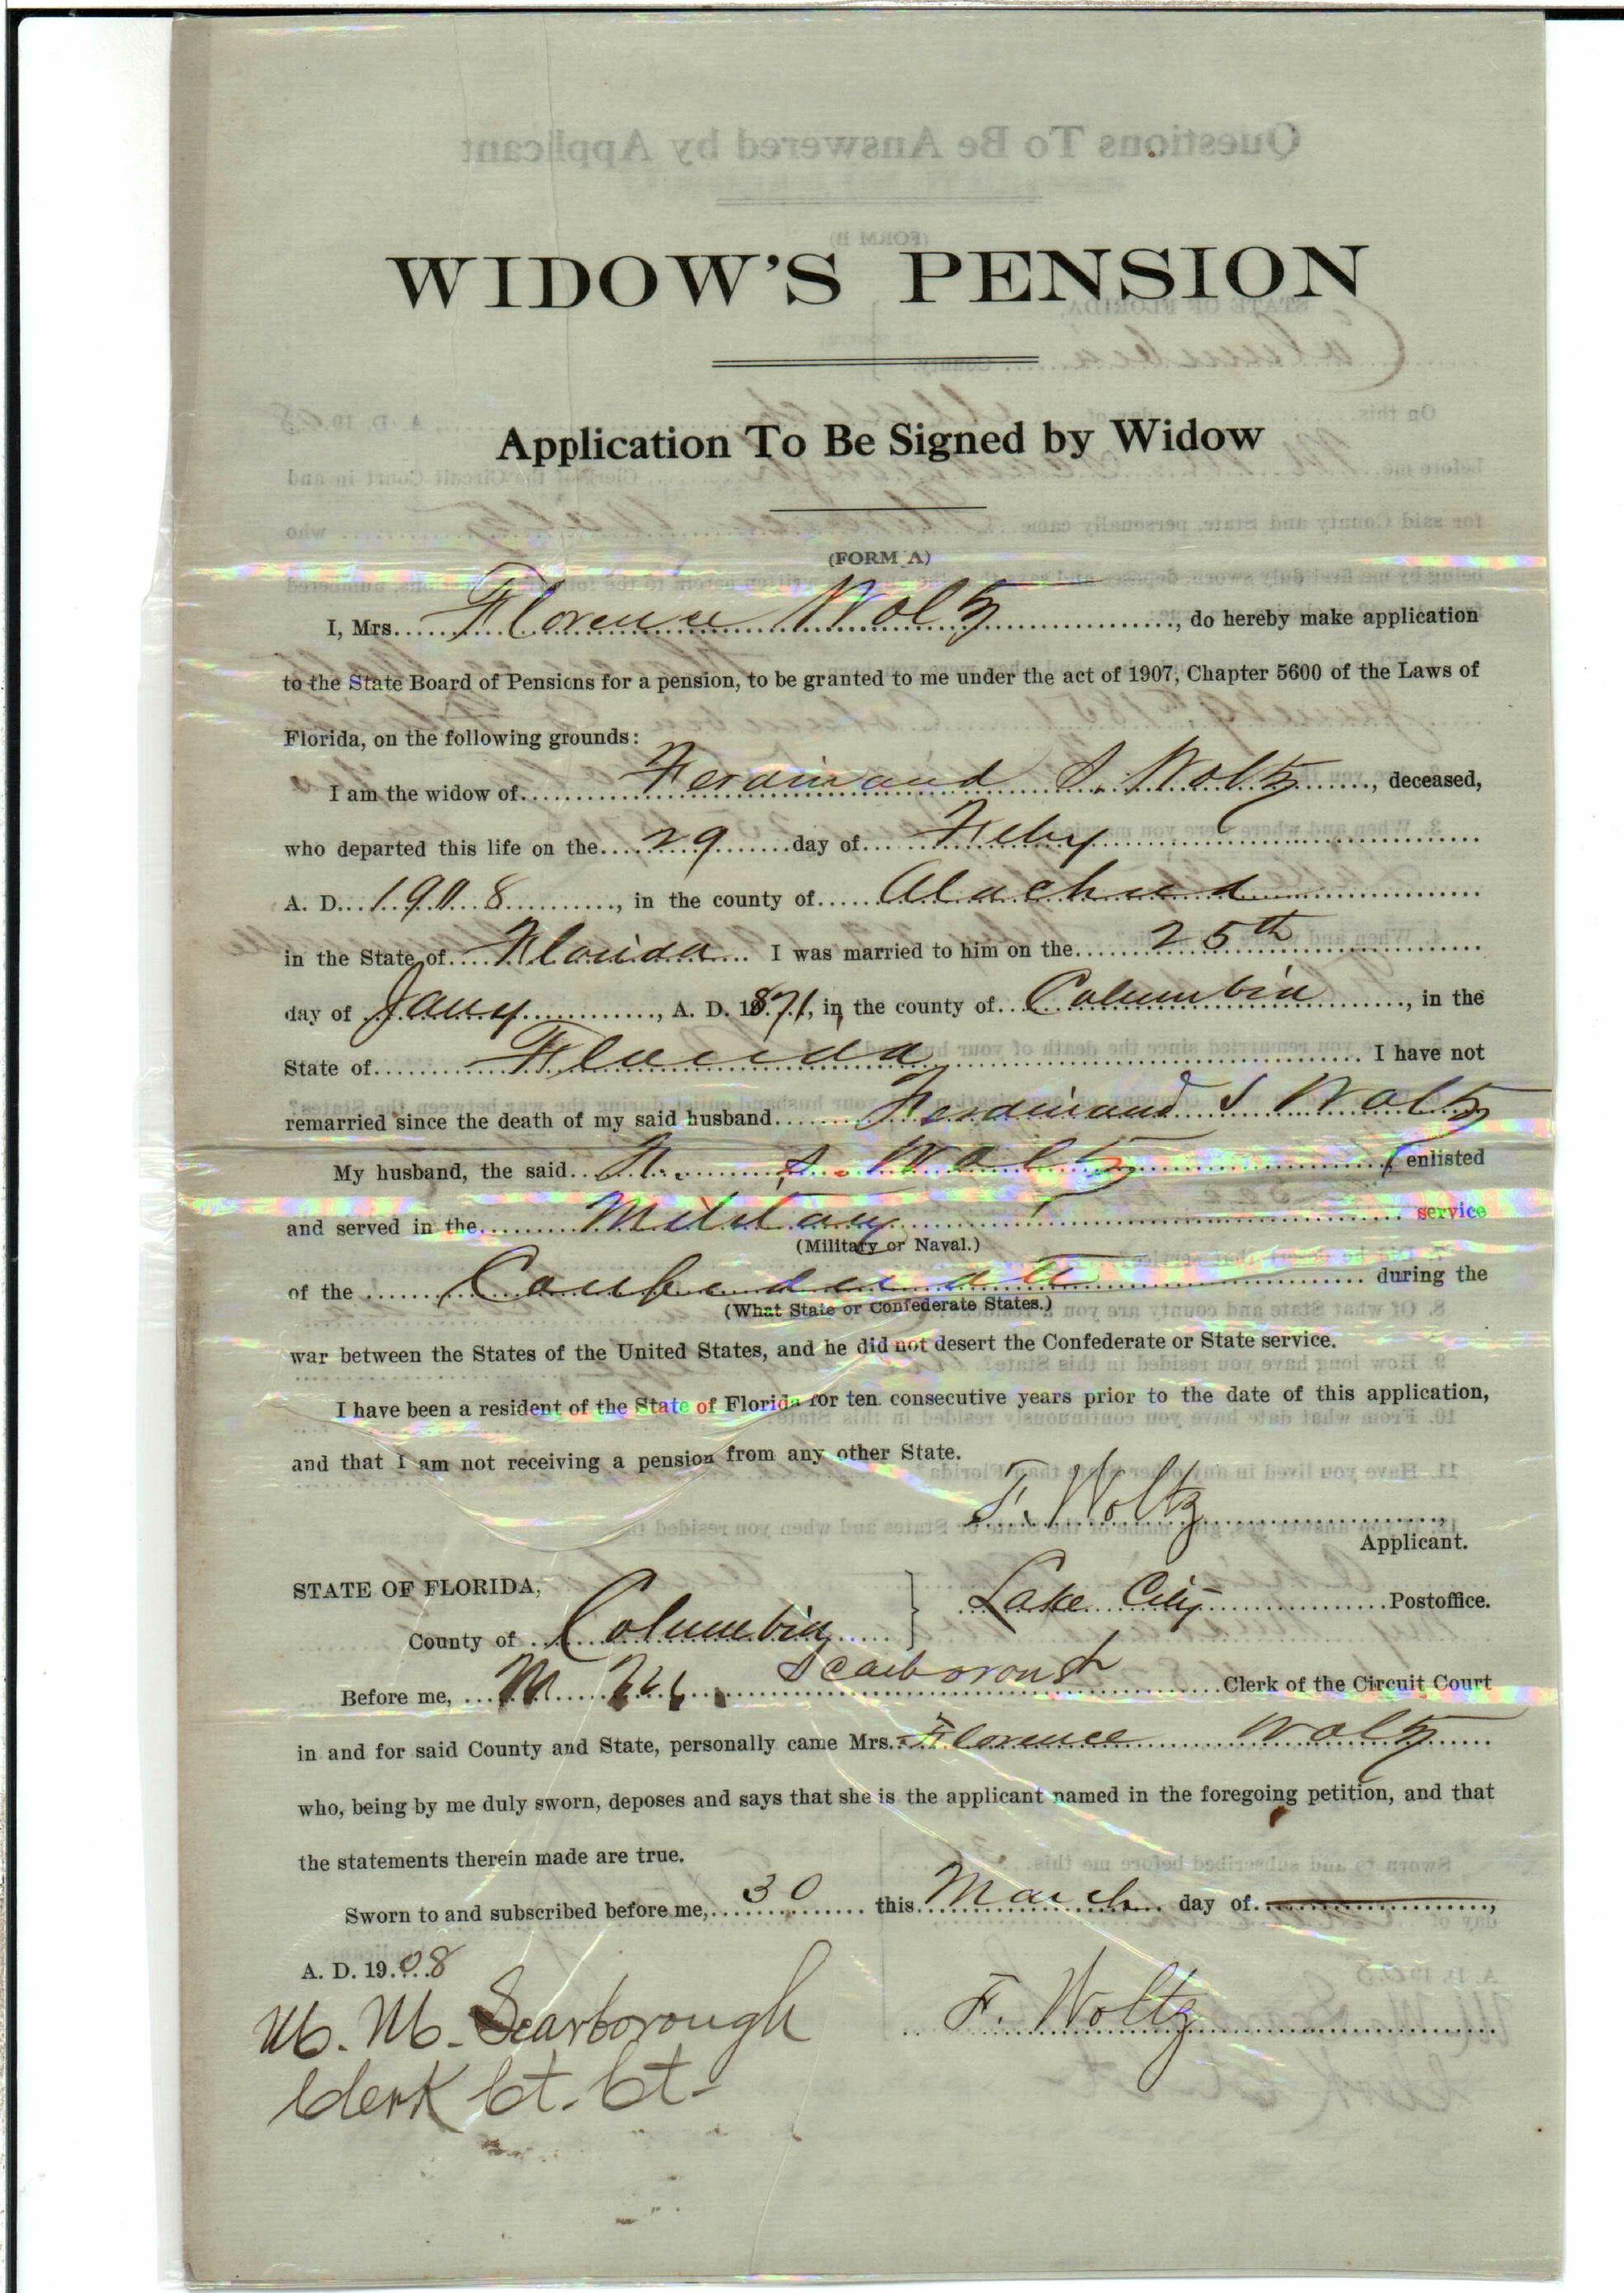 WIDOW'S PENSION
Application To Be Signed by Widow
(FORM A)
I, Mrs. Florence Woltz, do hereby make application
to the State Board of Pensions for a pension, to be granted to me under the act of 1907, Chapter 5600 of the Laws of
Florida, on the following grounds:
I am the widow of Ferdinand S. Woltz, deceased,
who departed this life on the 29 day of Feby
A. D. 1908, in the county of Alachua
in the State of Florida I was married to him on the 25th
day of Jany, A. D. 1871, in the county of Columbia, in the
State of Florida I have not
remarried since the death of my said husband Ferdinand S Woltz
My husband, the said F. S. Woltz enlisted
and served in the Military service
(Military or Naval.)
of the Confederate during the
(What State or Confederate States.)
war between the States of the United States, and he did not desert the Confederate or State service.
I have been a resident of the State of Florida for ten consecutive years prior to the date of this application,
and that I am not receiving a pension from any other State.
F. Woltz
Applicant.
STATE OF FLORIDA,
County of Columbia } Lake City Postoffice.
Before me, M M. Scarborough Clerk of the Circuit Court
in and for said County and State, personally came Mrs. Florence Woltz
who, being by me duly sworn, deposes and says that she is the applicant named in the foregoing petition, and that
the statements therein made are true.
Sworn to and subscribed before me, 30 this March day of
A. D. 1908
M. M. Scarborough F. Woltz
Clerk Ct. Ct.